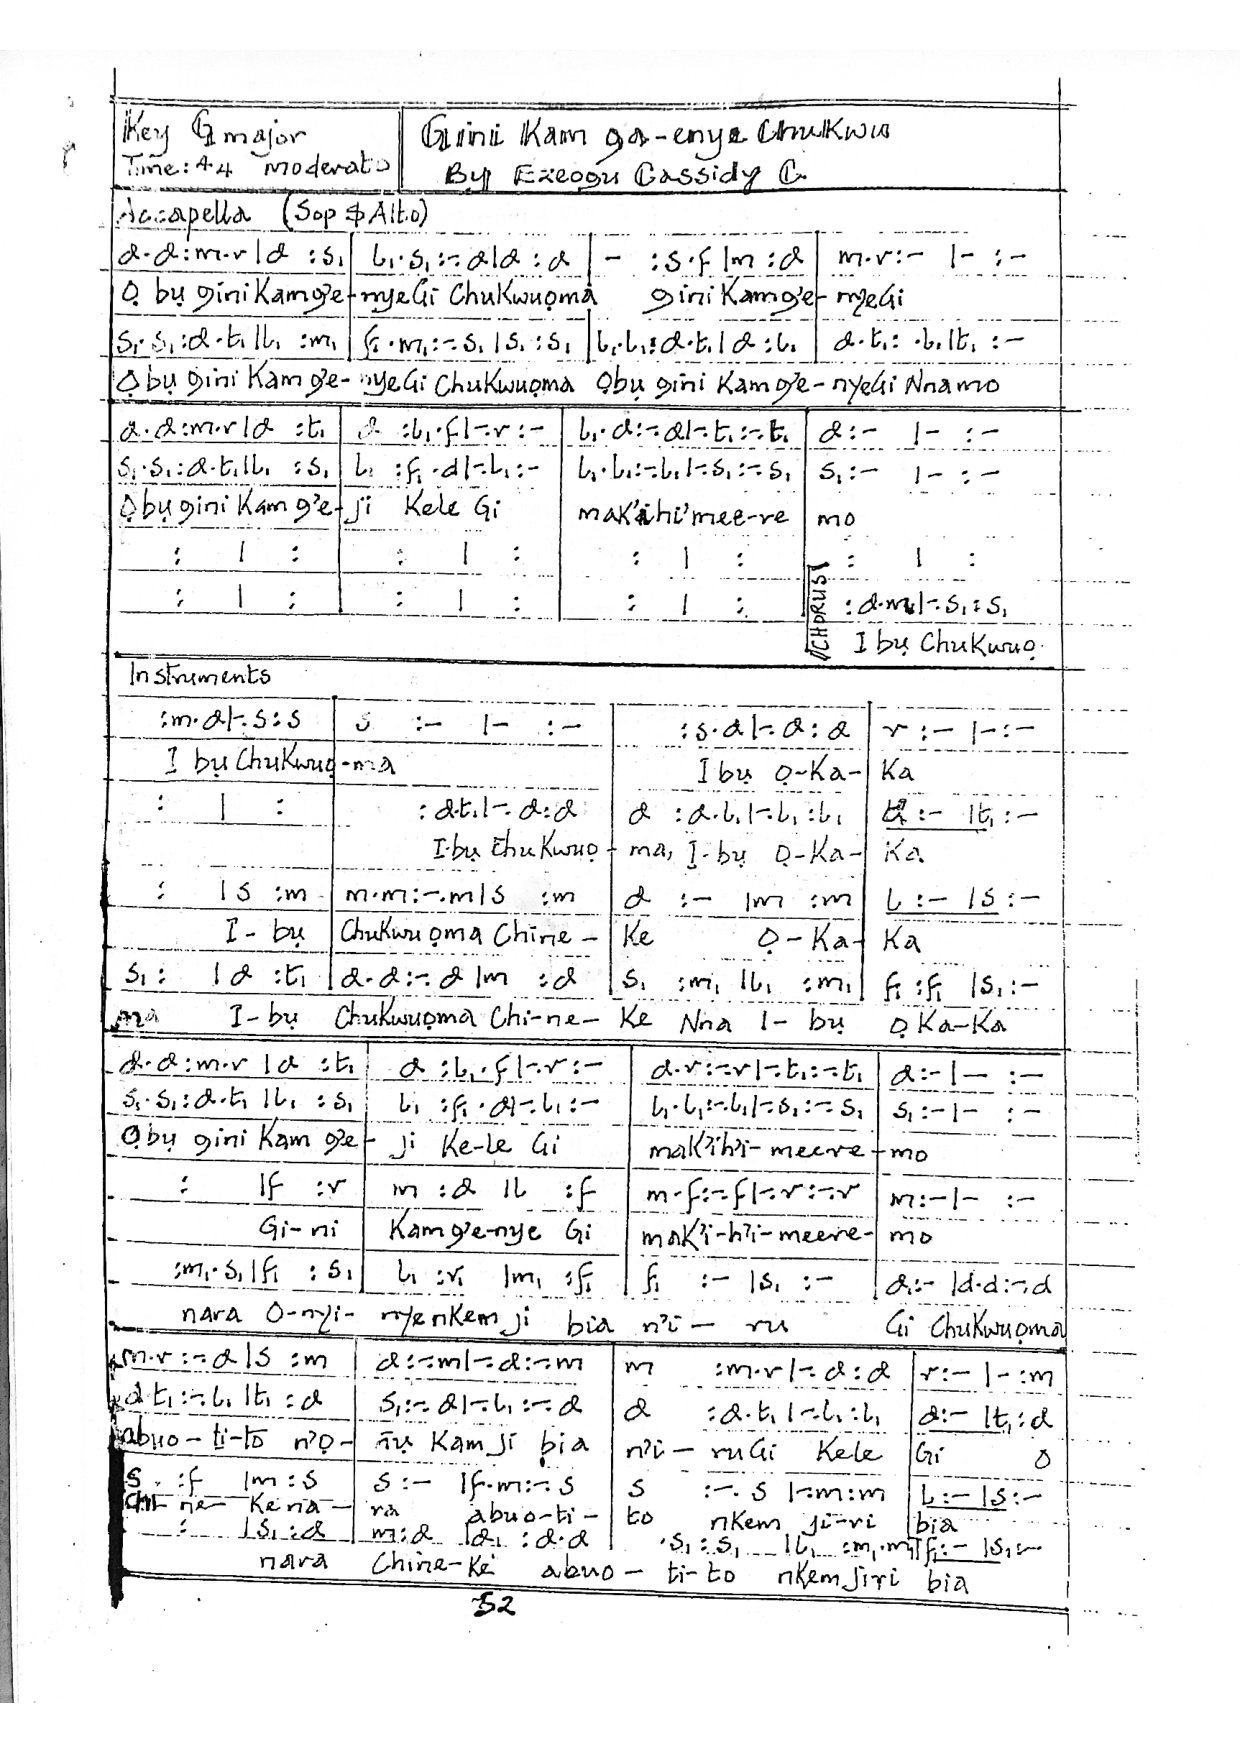 Key G major
Time: 4.4 moderato
Gini Kam ga-enye Chukwu
By Ezeogu Cassidy C.
Accapella (Sop $ Alto)
d.d:m.r|d :s₁ | l₁.s₁:-.d|d :d | - :s.f|m :d | m.r:- |- :-
Ọ bụ gini Kam g'e-nyeGi Chukwuọma gini Kam g'e-nyeGi
s₁.s₁:d.t₁|l₁ :m₁ | f₁.m₁:-.s₁|s₁ :s₁ | l₁.l₁:d.t₁|d :l₁ | d.t₁: .l₁|t₁ :-
Ọbụ gini Kam g'e-nyeGi Chukwuọma Ọbụ gini Kam g'e-nyeGi Nnamo
d.d:m.r|d :t₁ | d :l₁.f|-.r:- | l₁.d:-.d|-.t₁:-.t₁ | d:- |- :-
s₁.s₁:d.t₁|l₁ :s₁ | l₁ :f₁.d|-.l₁:- | l₁.l₁:-.l₁|-.s₁:-.s₁ | s₁:- |- :-
Ọbụ gini Kam g'e-ji Kele Gi mak'ihi'mee-re mo
: | : | : | : | : | : | : | :
: | : | : | : | : | : | :d.m₁|-.s₁:s₁
CHORUS
I bụ Chukwuọ.
Instruments
:m.d|-.s:s | s :- |- :- | :s.d|-.d:d | r :- |-:-
I bụ Chukwuọ-ma I bụ Ọ-Ka-Ka
: | : | :d.t₁|-.d:d | d :d.l₁|-.l₁:l₁ | d :- |t₁ :-
I-bụ Chukwuọ-ma, I-bụ Ọ-Ka-Ka
: |s :m | m.m:-.m|s :m | d :- |m :m | l :- |s :-
I-bụ Chukwuọma Chine-Ke Ọ-Ka-Ka
s₁: |d :t₁ | d.d:-.d|m :d | s₁ :m₁ |l₁ :m₁ | f₁ :f₁ |s₁:-
ma I-bụ Chukwuọma Chi-ne-Ke Nna I-bụ Ọ Ka-Ka
d.d:m.r|d :t₁ | d :l₁.f|-.r:- | d.r:-.r|-.t₁:-.t₁ | d:-|- :-
s₁.s₁:d.t₁|l₁ :s₁ | l₁ :f₁.d|-.l₁:- | l₁.l₁:-.l₁|-.s₁:-.s₁ | s₁:-|- :-
Ọbụ gini Kam g'e-ji Ke-le Gi mak'ih'i-meere-mo
: |f :r | m :d |l :f | m.f:-.f|-.r:-.r | m:-|- :-
Gi-ni Kam g'e-nye Gi mak'i-h'i-meere-mo
:m₁.s₁|f₁ :s₁ | l₁ :r₁ |m₁ :f₁ | f₁ :- |s₁ :- | d₁:- |d.d:-.d
nara O-nyi-nyenkem ji bia n'i-ru Gi Chukwuọma
m.r:-.d|s :m | d:-.m|-.d:-.m | m :m.r|-.d:d | r:- |- :m
d.t₁:-.l₁|t₁ :d | s₁:-.d|-.l₁:-.d | d :d.t₁|-.l₁:l₁ | d:- |t₁:d
abuo-ti-to n'ọ-ñụ Kam Ji bịa n'i-ruGi Kele Gi O
s :f |m :s | s:- |f.m:-.s | s :-.s|-.m:m | l:- |s:-
Chi-ne-Ke na-ra abuo-ti-to nkem ji-ri bịa
: |s₁:d | m:d |d₁:d.d | .s₁:s₁ |l₁ :m₁.m₁|f₁:- |s₁:-
nara Chine-Ke abuo-ti-to nkem Jiri bia
52